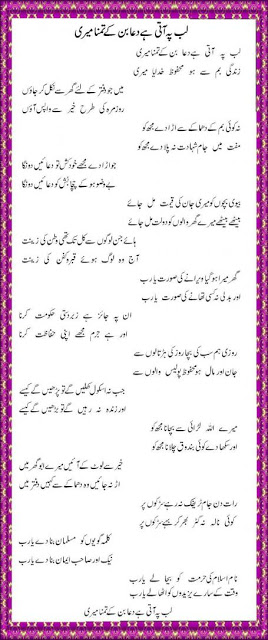 لب پہ آتی ہے دعا بن کے تمنا میری
لب پہ آتی ہے دعا بن کے تمنا میری
زندگی بم سے ہو محفوظ خدایا میری
میں جو دفتر کے لئے گھر سے نکل کر جاؤں
روزمرہ کی طرح خیر سے واپس آؤں
نہ کوئی بم کے دھماکے سے اڑا دے مجھ کو
مفت میں جام شہادت نہ پلا دے مجھ کو
جو اڑا دے مجھے خودکش تو دعائیں دونگا
بے وضو ہو کے بھی کو دعائیں دونگا
بیوی بچوں کو میری جان کی قیمت مل جائے
بیٹھے بیٹھے میرے گھر والوں کو دولت مل جائے
ہائے جن لوگوں سے کل تک تھی وطن کی زینت
آج وہ لوگ ہوئے قبر و کفن کی زینت
گھر میرا ہو گیا ویرانے کی صورت یا رب
اور بدلی نہ کسی تھانے کی صورت یا رب
ان پہ جائز ہے زبردستی حکومت کرنا
اور ہے جرم مجھے اپنی حفاظت کرنا
روزی ہم سب کی بچا روز کی ہڑتالوں سے
جان اور مال ہو محفوظ پولیس والوں سے
جب نہ اسکول کھلیں گے تو پڑھیں گے کیسے
اور زندہ نہ رہیں گے تو بڑھیں گے کیسے
میرے اللہ لڑائی سے بچانا مجھ کو
اور سکھا دے کوئی بندوق چلانا مجھ کو
خیر سے لوٹ کے آئیں میرے ابو گھر میں
اڑ نہ جائیں وہ دھماکے سے کہیں دفتر میں
رات دن جام ٹریفک نہ رہے سڑکوں پر
کوئی نالہ نہ گٹر بھر کر بہے سڑکوں پر
کل گویوں کو مسلمان بنا دے یا رب
نیک اور صاحب ایمان بنا دے یا رب
نام اسلام کی حرمت کو بچا لے یا رب
وقت کے سارے یزیدوں کو اٹھا لے یا رب
لب پہ آتی ہے دعا بن کے تمنا میری